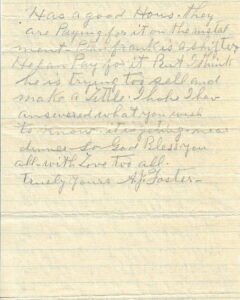 Has a good Hous. they
are Paying for it on the instal
ment. Plan frank is a shift
He can Pay for it But I think
he is trying to sell and
make a Little. I hope I hav
answered what you wish
to know it is going near
dinner so God Bless you
all with Love too all.
truely yours A.J. Foster